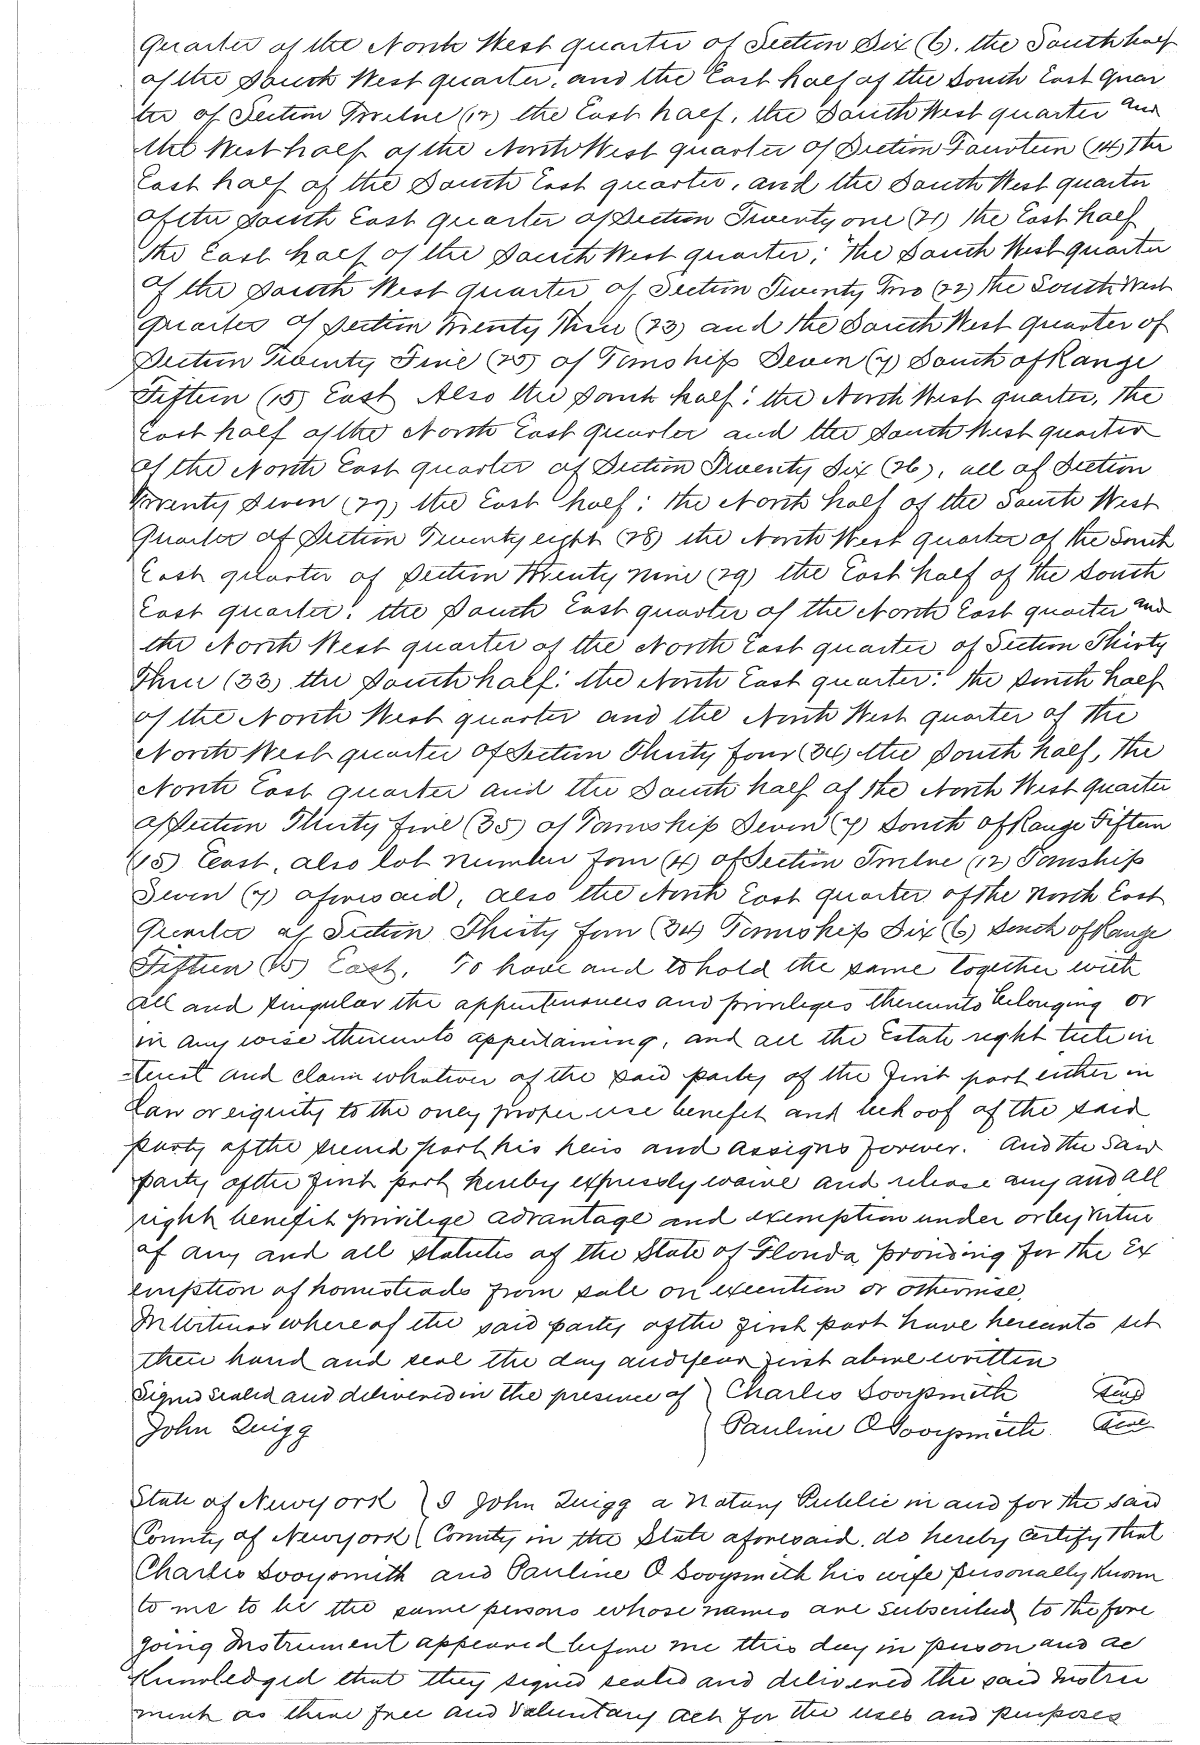 Quarter of the North West quarter of Section Six (6). the South half
of the South West quarter. and the East half of the South East quar
ter of Section Twelve (12) the East half, the South West quarter and
the West half of the North West quarter of Section Fourteen (14) the
East half of the South East quarter, and the South West quarter
of the South East quarter of Section Twenty one (21) the East half
the East half of the South West quarter; the South West quarter
of the South West quarter of Section Twenty Two (22) the South West
quarter of Section Twenty Three (23) and the South West quarter of
Section Twenty Five (25) of Township Seven (7) South of Range
Fifteen (15) East Also the South half: the North West quarter, the
East half of the North East quarter and the South West quarter
of the North East quarter of Section Twenty Six (26), all of Section
Twenty Seven (27) the East half: the North half of the South West
Quarter of Section Twenty eight (28) the North West quarter of the South
East quarter of Section Twenty Nine (29) the East half of the South
East quarter: the South East quarter of the North East quarter and
the North West quarter of the North East quarter of Section Thirty
Three (33) the South half: the North East quarter: the South half
of the North West quarter and the North West quarter of the
North West quarter of Section Thirty four (34) the South half, the
North East quarter and the South half of the North West Quarter
of Section Thirty five (35) of Township Seven (7) South of Range Fifteen
(15) East, also lot number four (4) of Section Twelve (12) Township
Seven (7) aforesaid, also the North East quarter of the North East
Quarter of Section Thirty four (34) Township Six (6) South of Range
Fifteen (15) East. To have and to hold the same together with
all and singular the appurtenances and privileges thereunto belonging or
in any wise thereunto appertaining, and all the Estate right title in
=terest and claim whatever of the said party of the first part either in
Law or equity to the only proper use benefit and behoof of the said
party of the second part his heirs and assigns forever. And the said
party of the first part hereby expressly waive and release any and all
right benefit privilege advantage and exemption under or by virtue
of any and all statutes of the State of Florida providing for the Ex
emption of homesteads from sale on execution or otherwise.
In Witness whereof the said party of the first part have hereunto set
their hand and seal the day and year first above written
Signed sealed and delivered in the presence of } Charles Sooysmith Seal
John Quigg } Pauline O Sooysmith Seal
State of New York } I John Quigg a Notary Public in and for the said
County of New York } County in the State aforesaid. do hereby certify that
Charles Sooysmith and Pauline O Sooysmith his wife personally known
to me to be the same persons whose names are subscribed to the fore
going Instrument appeared before me this day in person and ac
knowledged that they signed sealed and delivered the said Instru
ment as their free and voluntary act for the uses and purposes